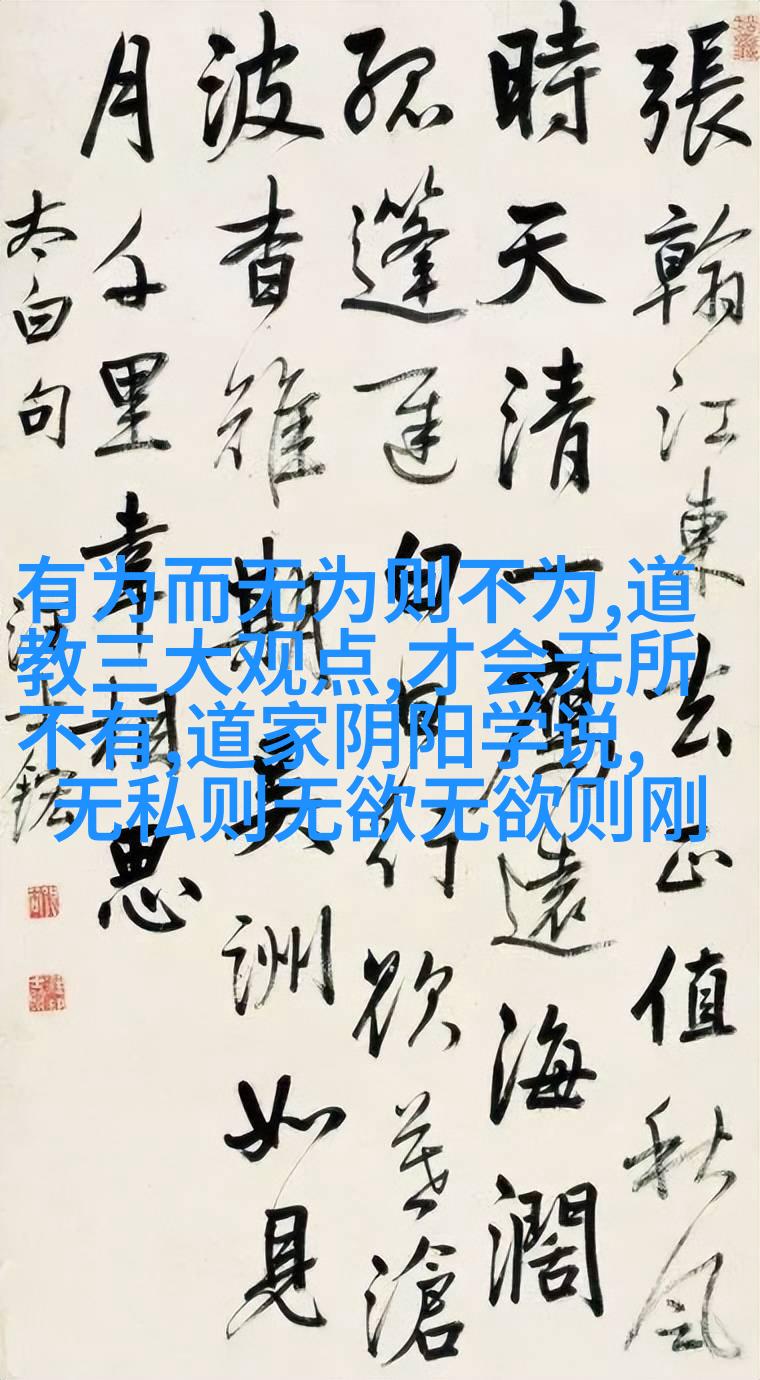 張翰江東去正值秋風
時天清一鴈遠海濶
孤篷遲白日行欲暮滄
波杳難期吳洲如見
月千里幸相思
太白句
汪士鋐
有为而无为则不为,道
教三大观点,才会无所
不有,道家阴阳学说,
无私则无欲无欲则刚